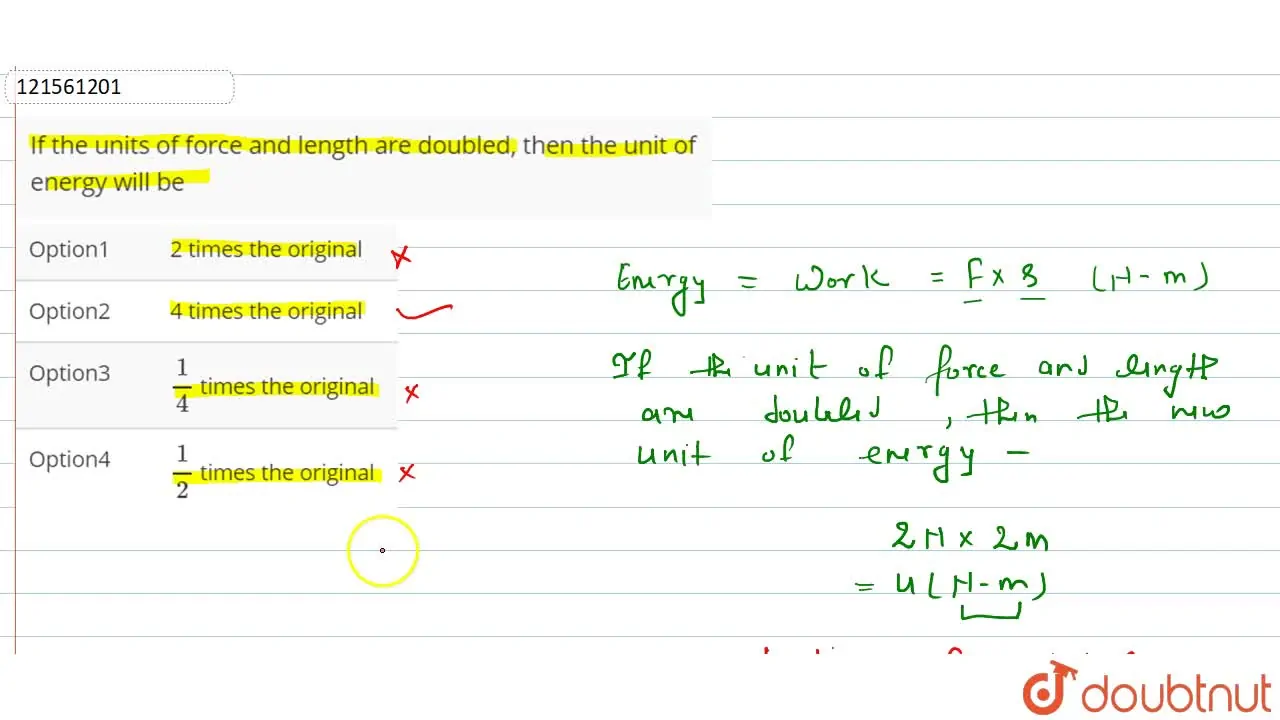 121561201
If the units of force and length are doubled, then the unit of
energy will be
Option1 2 times the original
Option2 4 times the original
Option3 1/4 times the original
Option4 1/2 times the original
Energy = Work = F × s (N-m)
If the unit of force and length
are doubled, then the new
unit of energy -
2N × 2m
= 4(N-m)
doubtnut